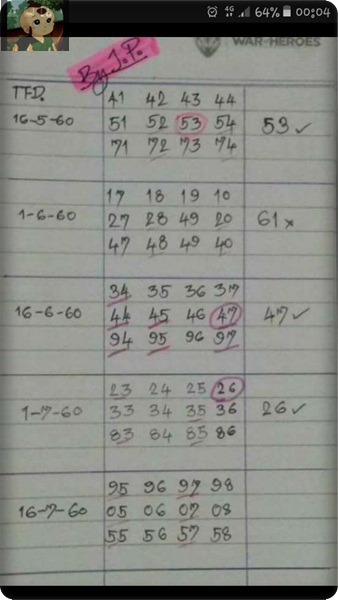 64% 00:04
WAR-HEROES
By J.P.
TFD. 41 42 43 44
16-5-60 51 52 53 54 53 ✓
71 72 73 74
17 18 19 10
1-6-60 27 28 49 20 61 ×
47 48 49 40
34 35 36 37
16-6-60 44 45 46 47 47 ✓
94 95 96 97
23 24 25 26
1-7-60 33 34 35 36 26 ✓
83 84 85 86
95 96 97 98
16-7-60 05 06 07 08
55 56 57 58